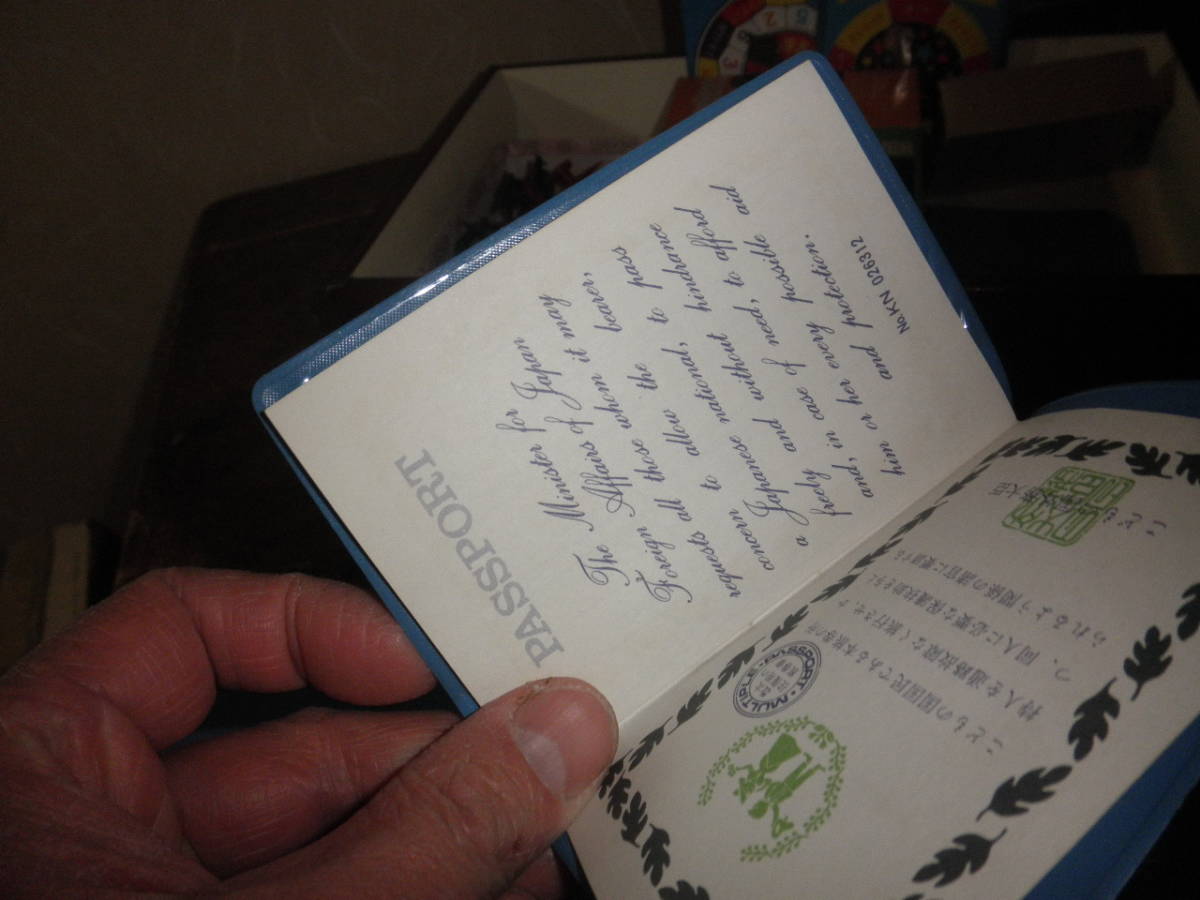 PASSPORT
The Minister for
Foreign Affairs of Japan
requests all those whom it may
concern to allow the bearer,
a Japanese national, to pass
freely and without hindrance
and, in case of need, to afford
him or her every possible aid
and protection.
No.KN 026312
こどもの国国民である本旅券の所
持人を通路故障なく旅行させ、か
つ、同人に必要な保護扶助を与え
られるよう関係の諸官に要請する。
MULTIPLE-PASSPORT